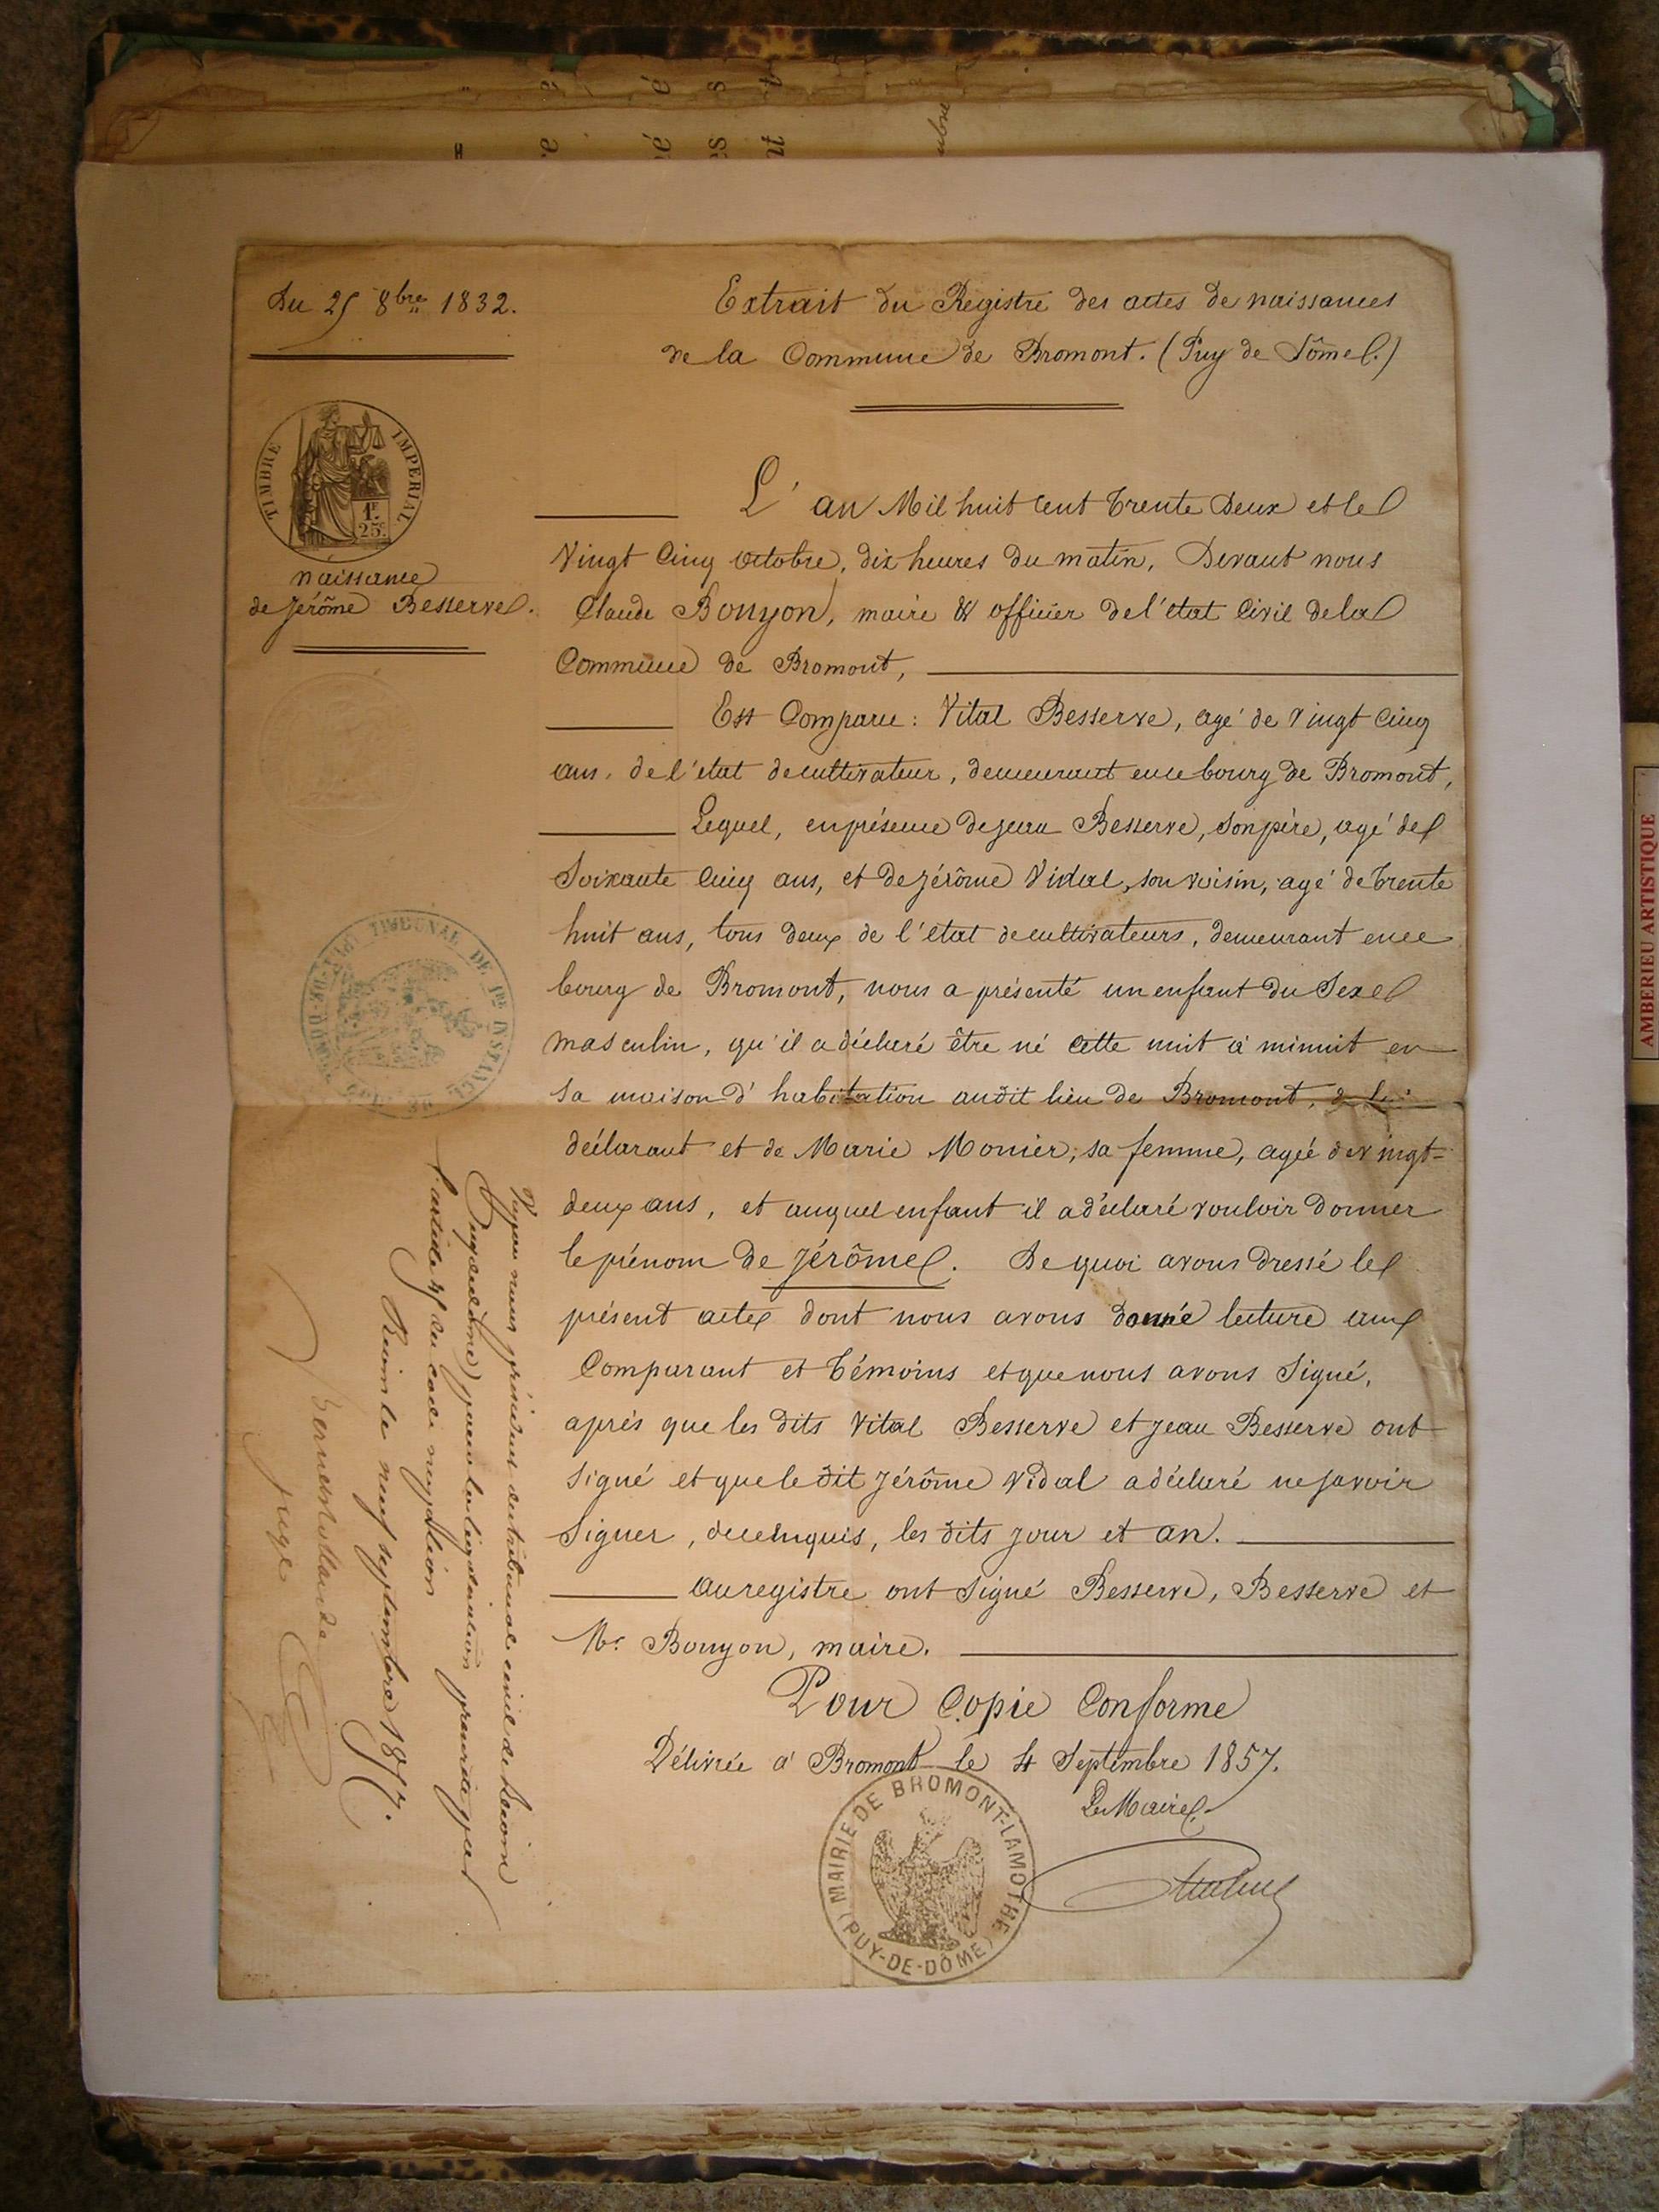 Du 25 8bre 1832.
Extrait du Registre des actes de naissances
de la Commune de Bromont. (Puy de Dôme.)
TIMBRE IMPERIAL
1F.
25c.
naissance
de Jérôme Besserve.
L'an Mil huit Cent trente Deux et le
Vingt Cinq octobre, dix heures du matin, Devant nous
Claude Bouyon, maire & officier de l'état Civil de la
Commune de Bromont,
Est Comparu : Vital Besserve, agé de Vingt Cinq
ans, de l'état de cultivateur, demeurant en ce bourg de Bromont,
Lequel, en présence de jean Besserve, son père, agé de
Soixante Cinq ans, et de Jérôme Vidal, son voisin, agé de trente
huit ans, tous deux de l'état de cultivateurs, demeurant en ce
bourg de Bromont, nous a présenté un enfant du Sexe
masculin, qu'il a déclaré être né Cette nuit à minuit en
sa maison d'habitation audit lieu de Bromont, de lui
déclarant et de Marie Monier, sa femme, agée de vingt-
deux ans, et auquel enfant il a déclaré vouloir Donner
le prénom de Jérôme. De quoi avons Dressé le
présent acte dont nous avons donné lecture aux
Comparant et témoins et que nous avons Signé,
après que les dits Vital Besserve et jean Besserve ont
Signé et que le dit Jérôme Vidal a déclaré ne savoir
Signer, de ce inquis, les dits jour et an.
au registre ont Signé Besserve, Besserve et
Bouyon, maire.
Pour Copie Conforme
Délivrée à Bromont le 4 Septembre 1857.
Le Maire.
MAIRIE DE BROMONT-LAMOTHE
(PUY-DE-DÔME)
TRIBUNAL DE 1RE INSTANCE
Vu par nous président du tribunal civil de Riom
(Puy de dome) pour la légalisation prescrite par
l'article 45 du code napoléon
Riom le neuf septembre 1857.
juge
AMBERIEU ARTISTIQUE